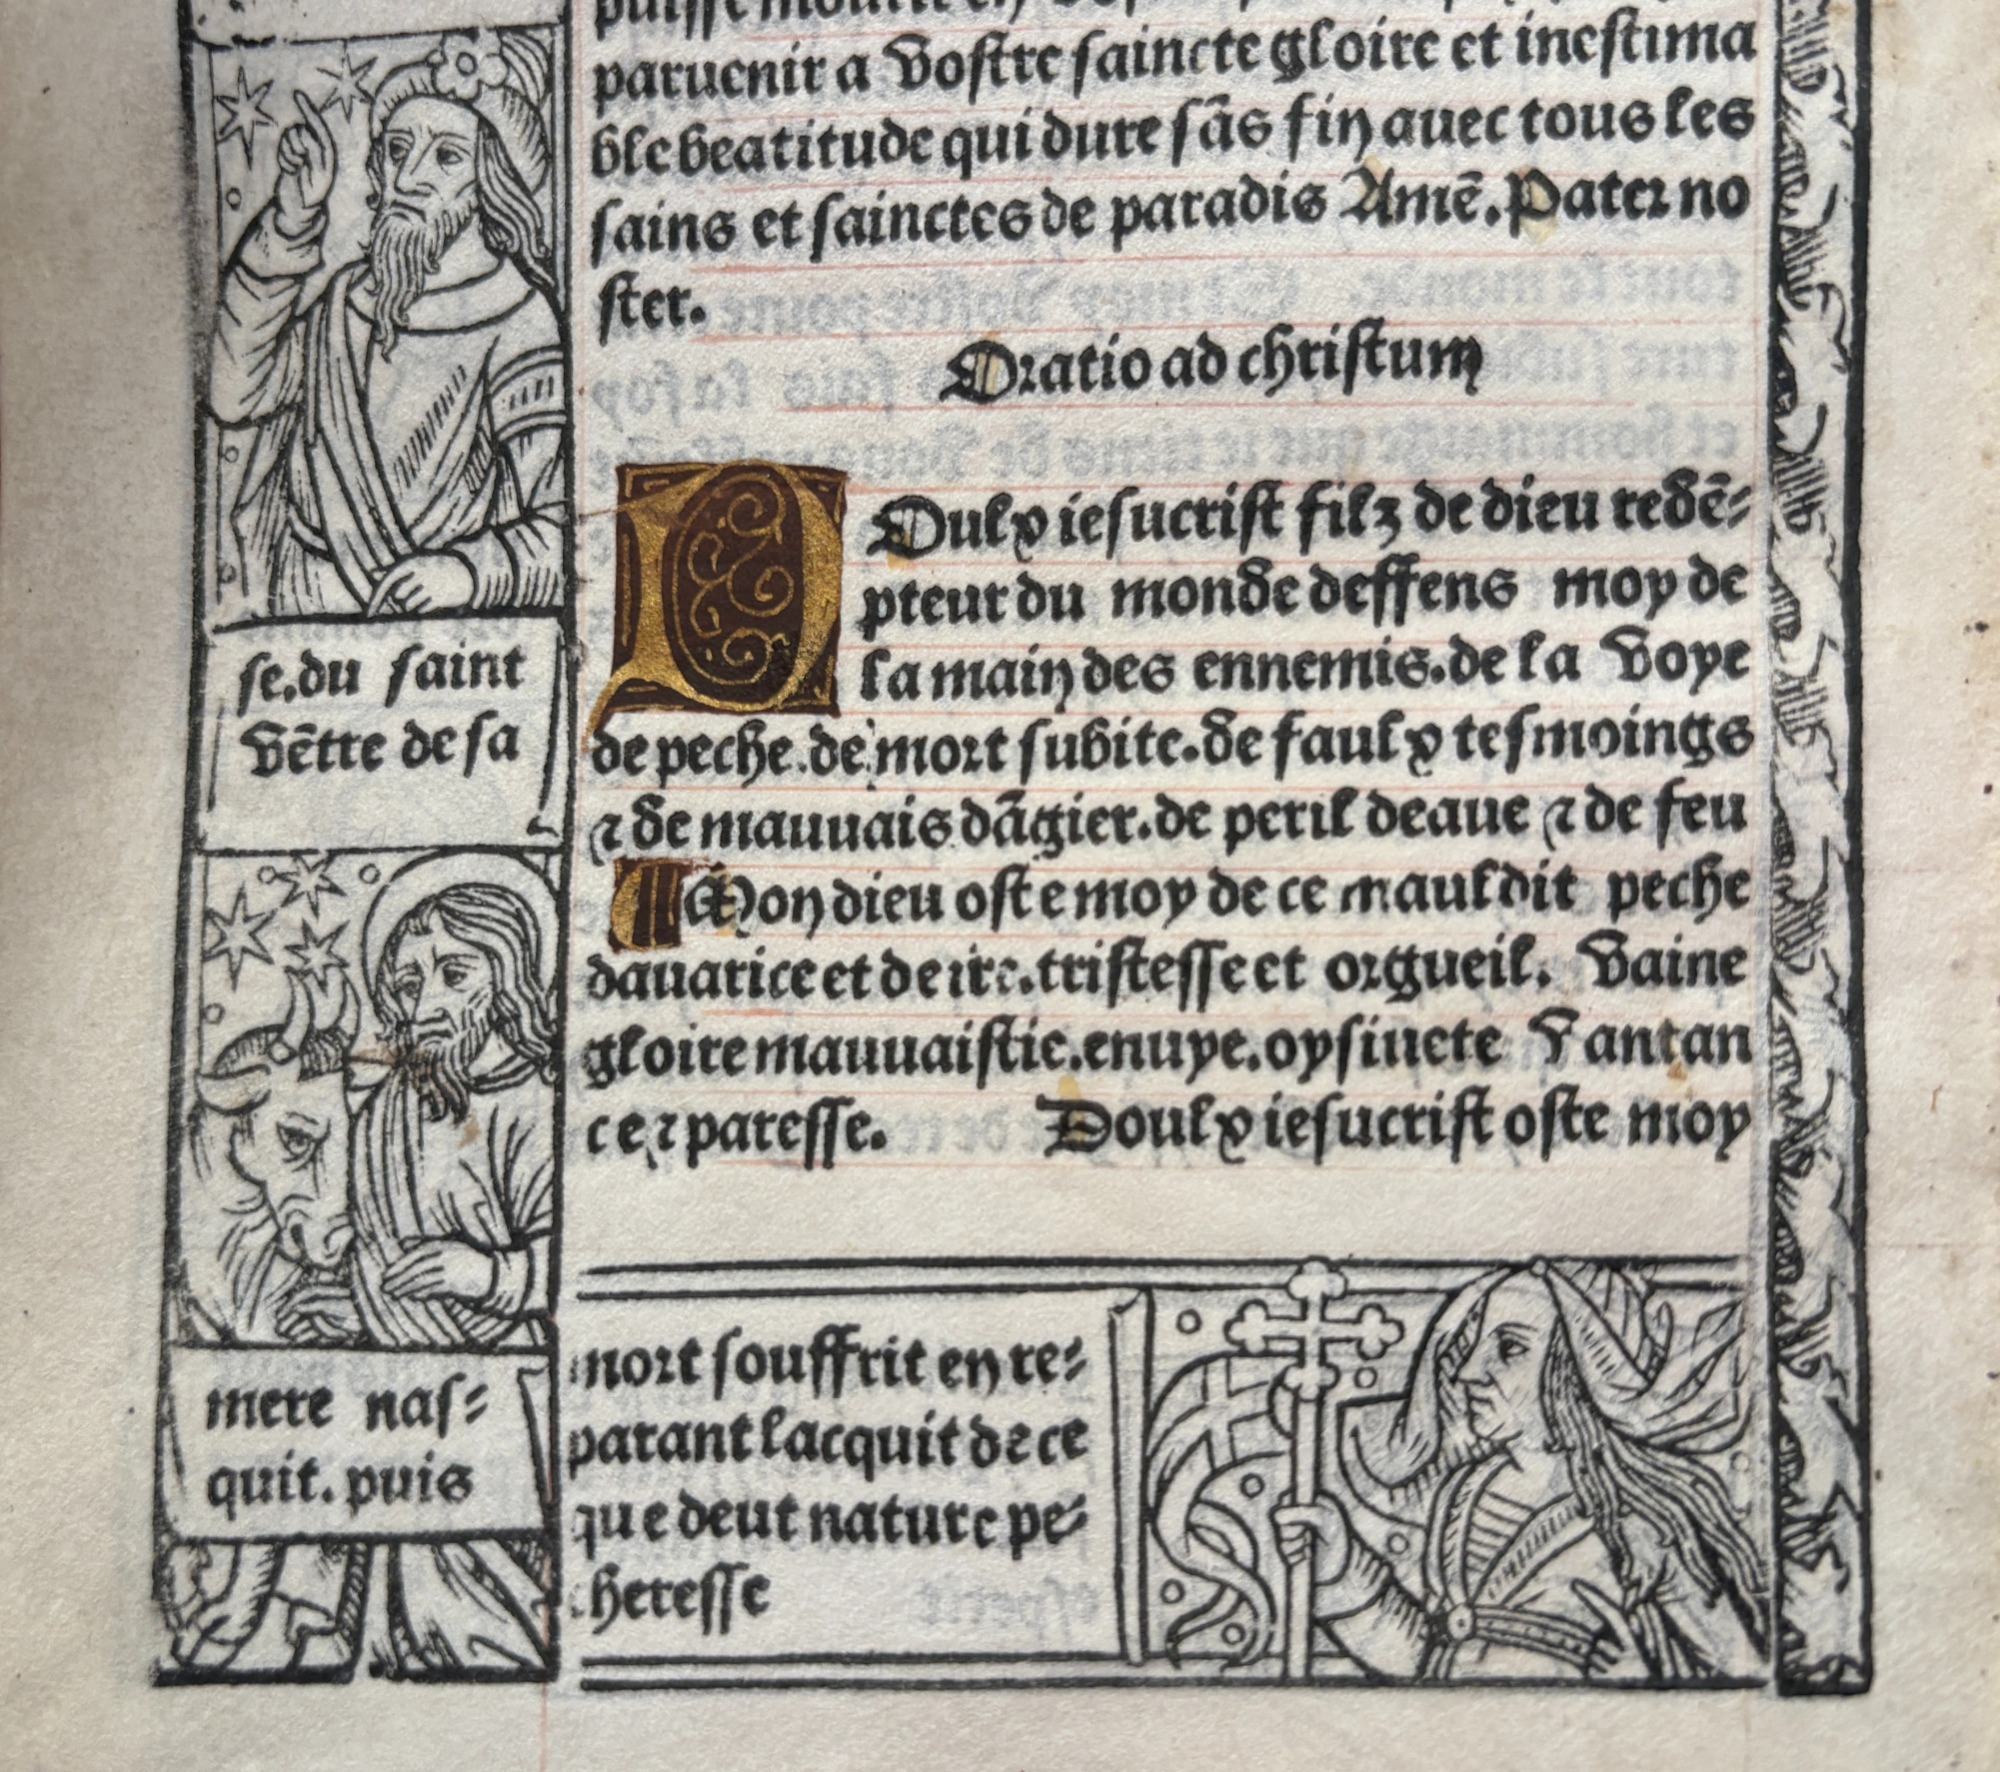 paruenir a vostre saincte gloire et inestima
ble beatitude qui dure sās fin auec tous les
sains et sainctes de paradis Amē. Pater no
ster.
Oratio ad christum
Doulx iesucrist filz de dieu redē-
pteur du monde deffens moy de
la main des ennemis. de la voye
de peche. de mort subite. de faulx tesmoings
⁊ de mauuais dāgier. de peril deaue ⁊ de feu
¶ Mon dieu oste moy de ce mauldit peche
dauarice et de ire. tristesse et orgueil. vaine
gloire mauuaistie. enuye. oysiuete vantan
ce ⁊ paresse. Doulx iesucrist oste moy
se. du saint
vētre de sa
mere nas-
quit. puis
mort souffrit en re-
parant lacquit de ce
que deut nature pe-
cheresse